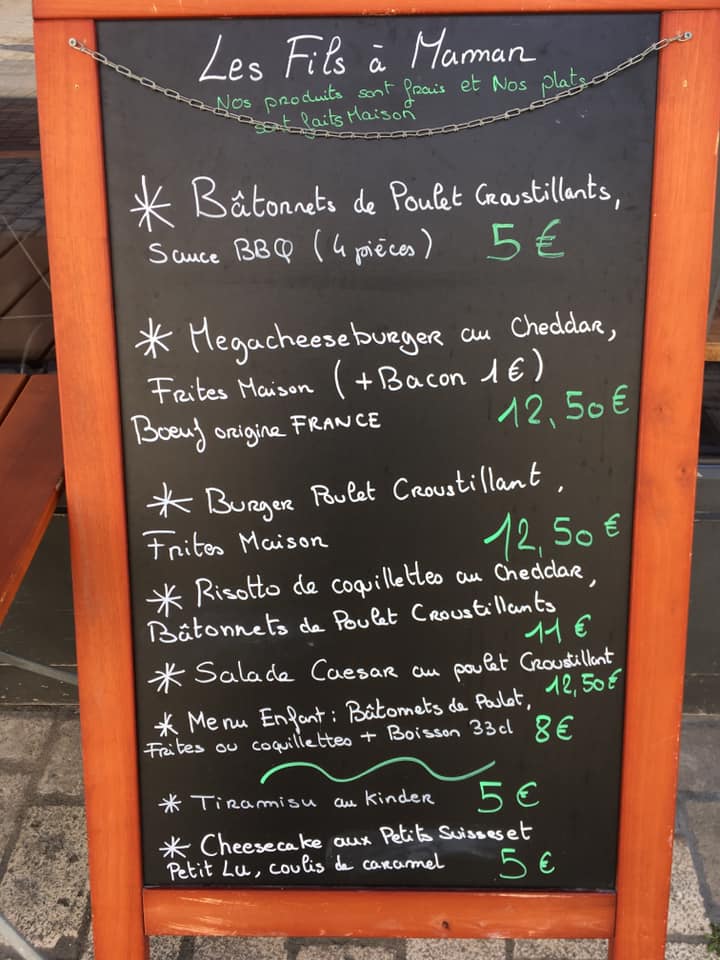 Les Fils à Maman
Nos produits sont frais et Nos plats
sont faits Maison
* Bâtonnets de Poulet Croustillants,
Sauce BBQ (4 pièces) 5 €
* Megacheeseburger au Cheddar,
Frites Maison (+Bacon 1€)
Boeuf origine FRANCE 12,50 €
* Burger Poulet Croustillant,
Frites Maison 12,50 €
* Risotto de coquillettes au Cheddar,
Bâtonnets de Poulet Croustillants
11 €
* Salade Caesar au poulet Croustillant
12,50 €
* Menu Enfant : Bâtonnets de Poulet,
Frites ou coquillettes + Boisson 33cl 8 €
* Tiramisu au Kinder 5 €
* Cheesecake aux Petits Suisses et
Petit Lu, coulis de caramel 5 €